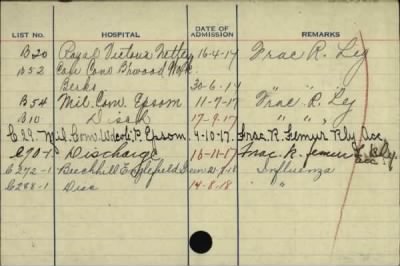 LIST No. HOSPITAL DATE OF ADMISSION REMARKS
B20 Royal Victoria Netley 16-4-17 Frac R. Leg
B52 Can Conv B'wood Wok.
Berks 30-6-17 " " "
B54 Mil. Con. Epsom 11-7-17 Frac R. Leg
B10 Disch 17-9-17 " " "
C29 Mil. Con. Wdcote P. Epsom 4-10-17. Frac R. Femur Rly Acc.
C70-1 Discharge 16-11-17 Frac R. femur Rly. acc
C272-1 Beechhill Englefield Green 21-7-18 Influenza
C288-1 Disc 14-8-18 "